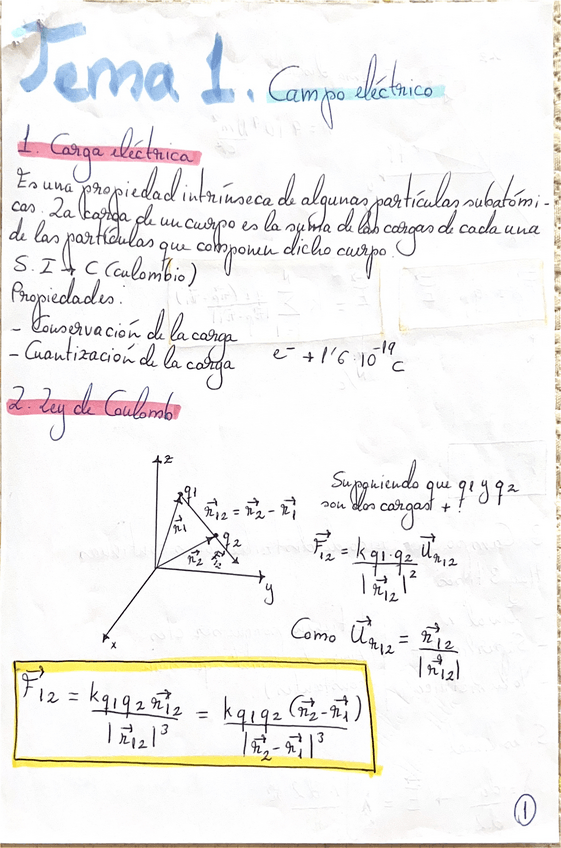 Tema 1. Campo eléctrico
1. Carga eléctrica
Es una propiedad intrínseca de algunas partículas subatómi-
cas. La carga de un cuerpo es la suma de las cargas de cada una
de las partículas que componen dicho cuerpo.
S. I → C (Culombio)
Propiedades:
- Conservación de la carga
- Cuantización de la carga e⁻ + 1'6·10⁻¹⁹ C
2. Ley de Coulomb
z
q1
r⃗1
r⃗12 = r⃗2 - r⃗1
q2
r⃗2
y
x
Suponiendo que q1 y q2
son dos cargas +
F⃗12 = k q1·q2 / |r⃗12|² U⃗r12
Como U⃗r12 = r⃗12 / |r⃗12|
F⃗12 = k q1 q2 r⃗12 / |r⃗12|³ = k q1 q2 (r⃗2 - r⃗1) / |r⃗2 - r⃗1|³
1